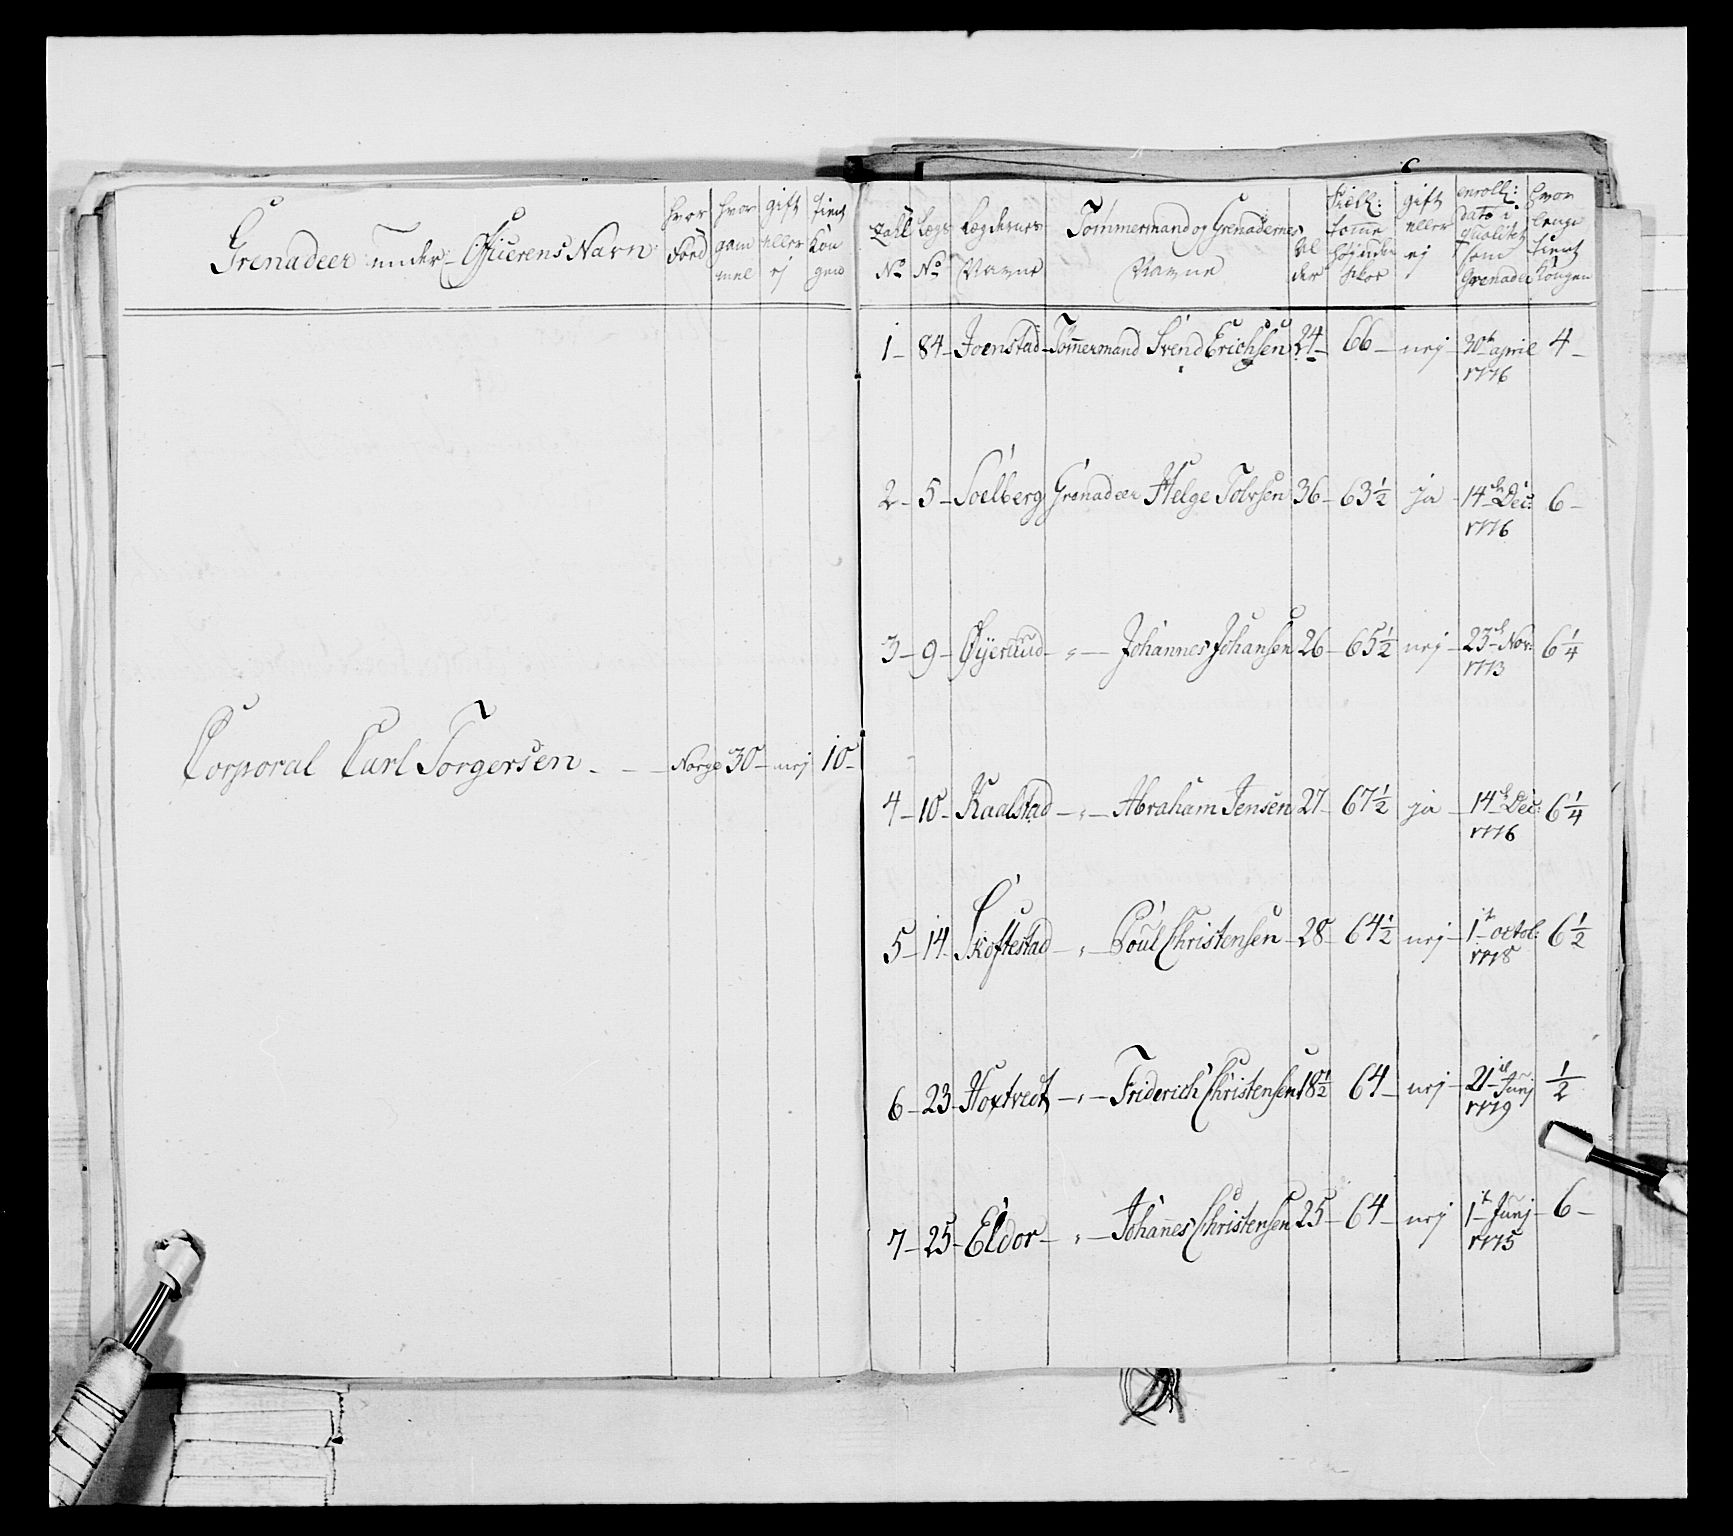 Grenadeer under Officerens Navn
hvor Fød
hvor gam mel
gift eller ej
tient Kon gen
Corporal Carl Torgersen - - - Norge 30 - nej 10 -
Zall No
Lægs No
Lægdernes Navne
Tømmermand og Grenadernes Navne
Al der
høj uden skoe
gift eller ej
enroll: dato i qualitet som Grenadeer
hvor lenge tient Kongen
1 - 84 - Joenstad - Tømmermand Svend Erichsen 24 - 66 - nej - 20de april 1776 4 -
2 - 5 - Soelberg Grenadeer Helge Tolvsen 36 - 63½ - ja - 14de Dec: 1776 6 -
3 - 9 - Øÿerud - " - Johannes Johansen 26 - 65½ - nej - 23de Nov: 1773 6¼
4 - 10 - Kaalstad - " - Abraham Jensen 27 - 67½ ja - 14de Dec: 1776 6¼
5 - 14 - Skoftestad - " - Poul Christensen - 28 - 64½ - nej - 1te octob: 1778 6½
6 - 23 - Hoxtvedt - " - Friderich Christensen 18½ 64 - nej - 21de Junj 1779 ½
7 - 25 - Eldor - " - Johannes Christensen 25 - 64 - nej - 1te Junj 1775 6 -